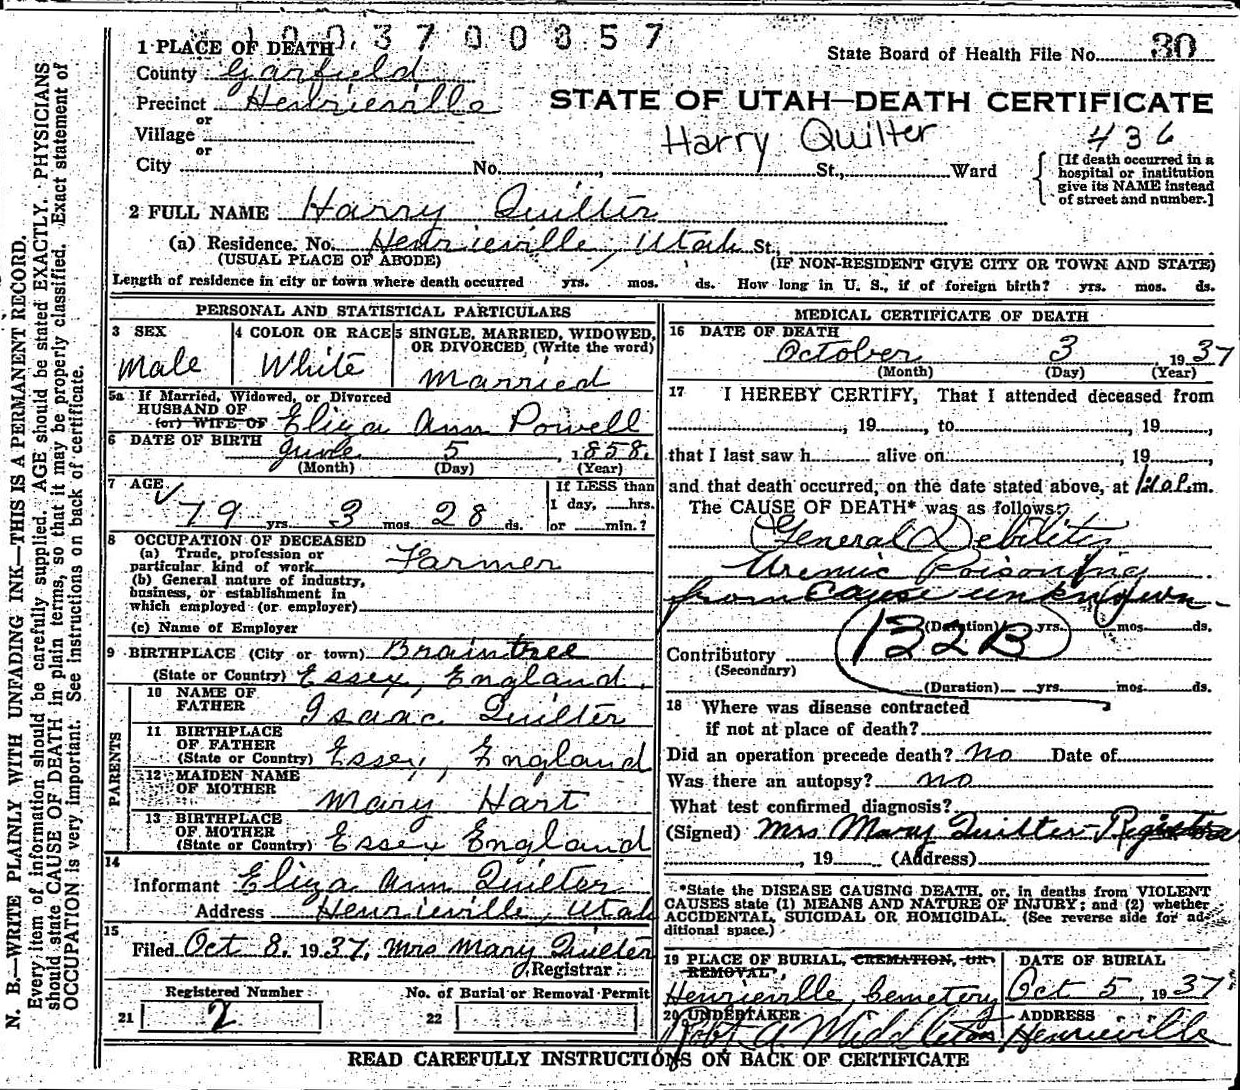 1003700857
1 PLACE OF DEATH
State Board of Health File No. 30
County Garfield
Precinct Henrieville
STATE OF UTAH—DEATH CERTIFICATE
or
Village
Harry Quilter 436
or
City No. St., Ward
[If death occurred in a
hospital or institution
give its NAME instead
of street and number.]
2 FULL NAME Harry Quilter
(a) Residence. No. Henrieville, Utah St.,
(USUAL PLACE OF ABODE) (IF NON-RESIDENT GIVE CITY OR TOWN AND STATE)
Length of residence in city or town where death occurred yrs. mos. ds. How long in U. S., if of foreign birth? yrs. mos. ds.
PERSONAL AND STATISTICAL PARTICULARS
3 SEX
Male
4 COLOR OR RACE
White
5 SINGLE, MARRIED, WIDOWED,
OR DIVORCED (Write the word)
Married
5a If Married, Widowed, or Divorced
HUSBAND OF
(or) WIFE OF Eliza Ann Powell
6 DATE OF BIRTH June 5, 1858.
(Month) (Day) (Year)
7 AGE
79 yrs. 3 mos. 28 ds.
If LESS than
1 day, hrs.
or min.?
8 OCCUPATION OF DECEASED
(a) Trade, profession or
particular kind of work Farmer
(b) General nature of industry,
business, or establishment in
which employed (or employer)
(c) Name of Employer
9 BIRTHPLACE (City or town) Braintree
(State or Country) Essex, England.
PARENTS
10 NAME OF
FATHER Isaac Quilter
11 BIRTHPLACE
OF FATHER
(State or Country) Essex, England
12 MAIDEN NAME
OF MOTHER Mary Hart
13 BIRTHPLACE
OF MOTHER
(State or Country) Essex England
14
Informant Eliza Ann Quilter
Address Henrieville, Utah
15
Filed Oct 8. 1937. Mrs Mary Quilter
Registrar
Registered Number
21 2
No. of Burial or Removal Permit
22
MEDICAL CERTIFICATE OF DEATH
16 DATE OF DEATH
October 3, 1937
(Month) (Day) (Year)
17 I HEREBY CERTIFY, That I attended deceased from
, 19 , to , 19 ,
that I last saw h alive on , 19 ,
and that death occurred, on the date stated above, at P.m.
The CAUSE OF DEATH* was as follows:
General Debility
Uremic Poisoning
from Cause unknown-
(Duration) yrs. mos. ds.
132B
Contributory
(Secondary)
(Duration) yrs. mos. ds.
18 Where was disease contracted
if not at place of death?
Did an operation precede death? No Date of
Was there an autopsy? no
What test confirmed diagnosis?
(Signed) Mrs Mary Quilter-Registrar
, 19 (Address)
*State the DISEASE CAUSING DEATH, or, in deaths from VIOLENT
CAUSES state (1) MEANS AND NATURE OF INJURY; and (2) whether
ACCIDENTAL, SUICIDAL OR HOMICIDAL. (See reverse side for ad-
ditional space.)
19 PLACE OF BURIAL, CREMATION, OR
REMOVAL
Henrieville Cemetery
DATE OF BURIAL
Oct 5, 1937
20 UNDERTAKER
Robt A Middleton
ADDRESS
Henrieville
READ CAREFULLY INSTRUCTIONS ON BACK OF CERTIFICATE
N. B.—WRITE PLAINLY WITH UNFADING INK—THIS IS A PERMANENT RECORD.
Every item of information should be carefully supplied. AGE should be stated EXACTLY. PHYSICIANS
should state CAUSE OF DEATH in plain terms, so that it may be properly classified. Exact statement of
OCCUPATION is very important. See instructions on back of certificate.